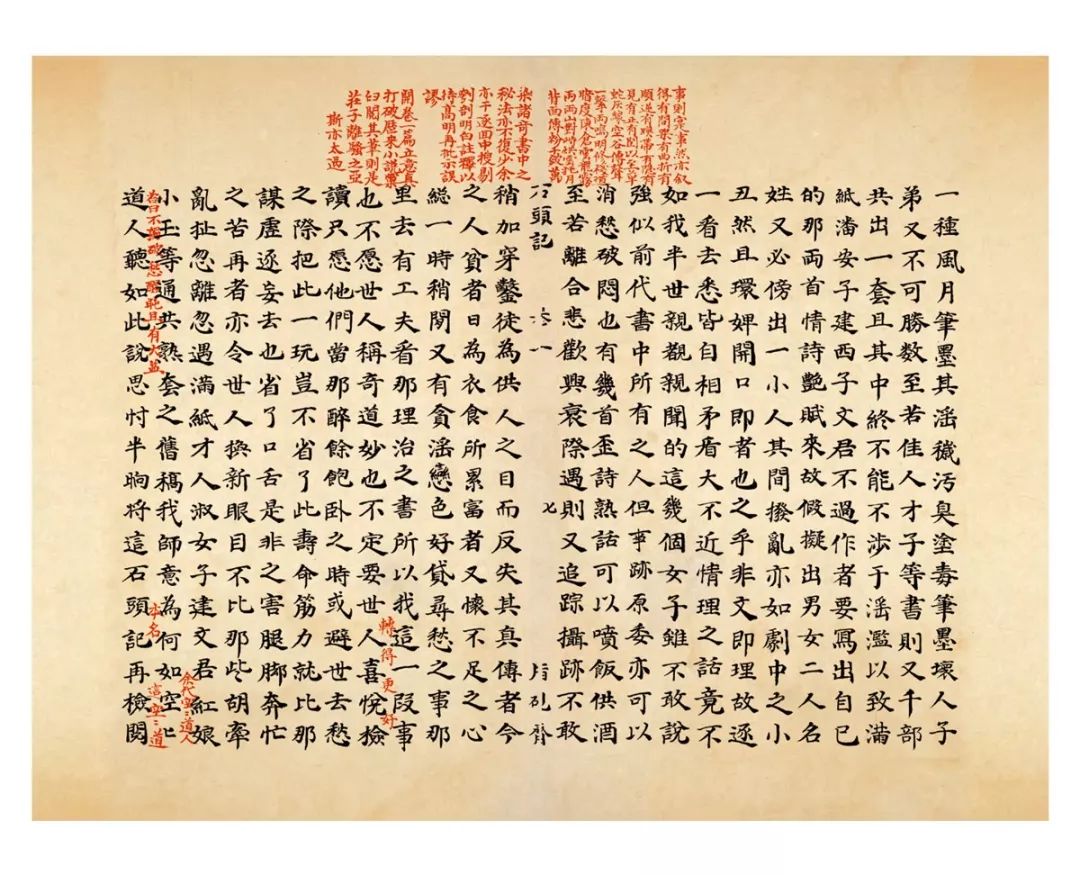 事則寔事然亦叙
得有間架有曲折有
順逆有映帶有隱有
見有正有閏以至草
蛇灰線空谷傳聲
一擊兩鳴明修棧道
暗度陳倉雲龍霧
雨兩山對峙烘雲托月
背面傳粉千皴萬
染諸奇書中之
秘法亦不復少余
亦于逐回中搜剔
刳剖明白註釋以
待高明再批示誤
謬
開卷一篇立意真
打破歷來小說窠
臼閱其筆則是
莊子離騷之亞
斯亦太過
一種風月筆墨其滛穢汚臭塗毒筆墨壞人子
弟又不可勝数至若佳人才子等書則又千部
共出一套且其中終不能不涉于滛濫以致滿
紙潘安子建西子文君不過作者要寫出自己
的那両首情詩艷賦來故假擬出男女二人名
姓又必傍出一小人其間撥亂亦如劇中之小
丑然且環婢開口即者也之乎非文即理故逐
一看去悉皆自相矛盾大不近情理之話竟不
如我半世親覩親聞的這幾個女子雖不敢說
強似前代書中所有之人但事跡原委亦可以
消愁破悶也有幾首歪詩熟話可以噴飯供酒
至若離合悲歡興衰際遇則又追踪攝跡不敢
石頭記 卷一 七 脂硯齋
稍加穿鑿徒為供人之目而反失其真傳者今
之人貧者日為衣食所累富者又懷不足之心
縂一時稍閑又有貪滛戀色好貨尋愁之事那
里去有工夫看那理治之書所以我這一段事
也不愿世人稱奇道妙也不定要世人喜悅撿
轉得更好
讀只愿他們當那醉餘飽卧之時或避世去愁
之際把此一玩豈不省了此壽命筋力就比那
謀虛逐妄去也省了口舌是非之害腿脚奔忙
之苦再者亦令世人換新眼目不比那些胡牽
亂扯忽離忽遇滿紙才人淑女子建文君紅娘
小玉等通共熟套之舊稿我師意為何如空〻
余代空〻道人
答曰不獨破愁醒盹且有大益
道人聽如此說思忖半晌將這石頭記再檢閱
本名
這空〻道